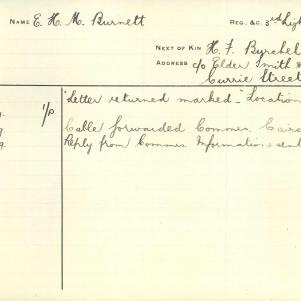 NAME E. H. M. Burnett REG. &C. 3rd Ligh
NEXT OF KIN H. F. Byrchel
ADDRESS c/o Elder Smith &
Currie Street
1/P "Letter returned marked - "Location
Cable forwarded Commrs. Cairo
9. Reply from Commrs Information sent